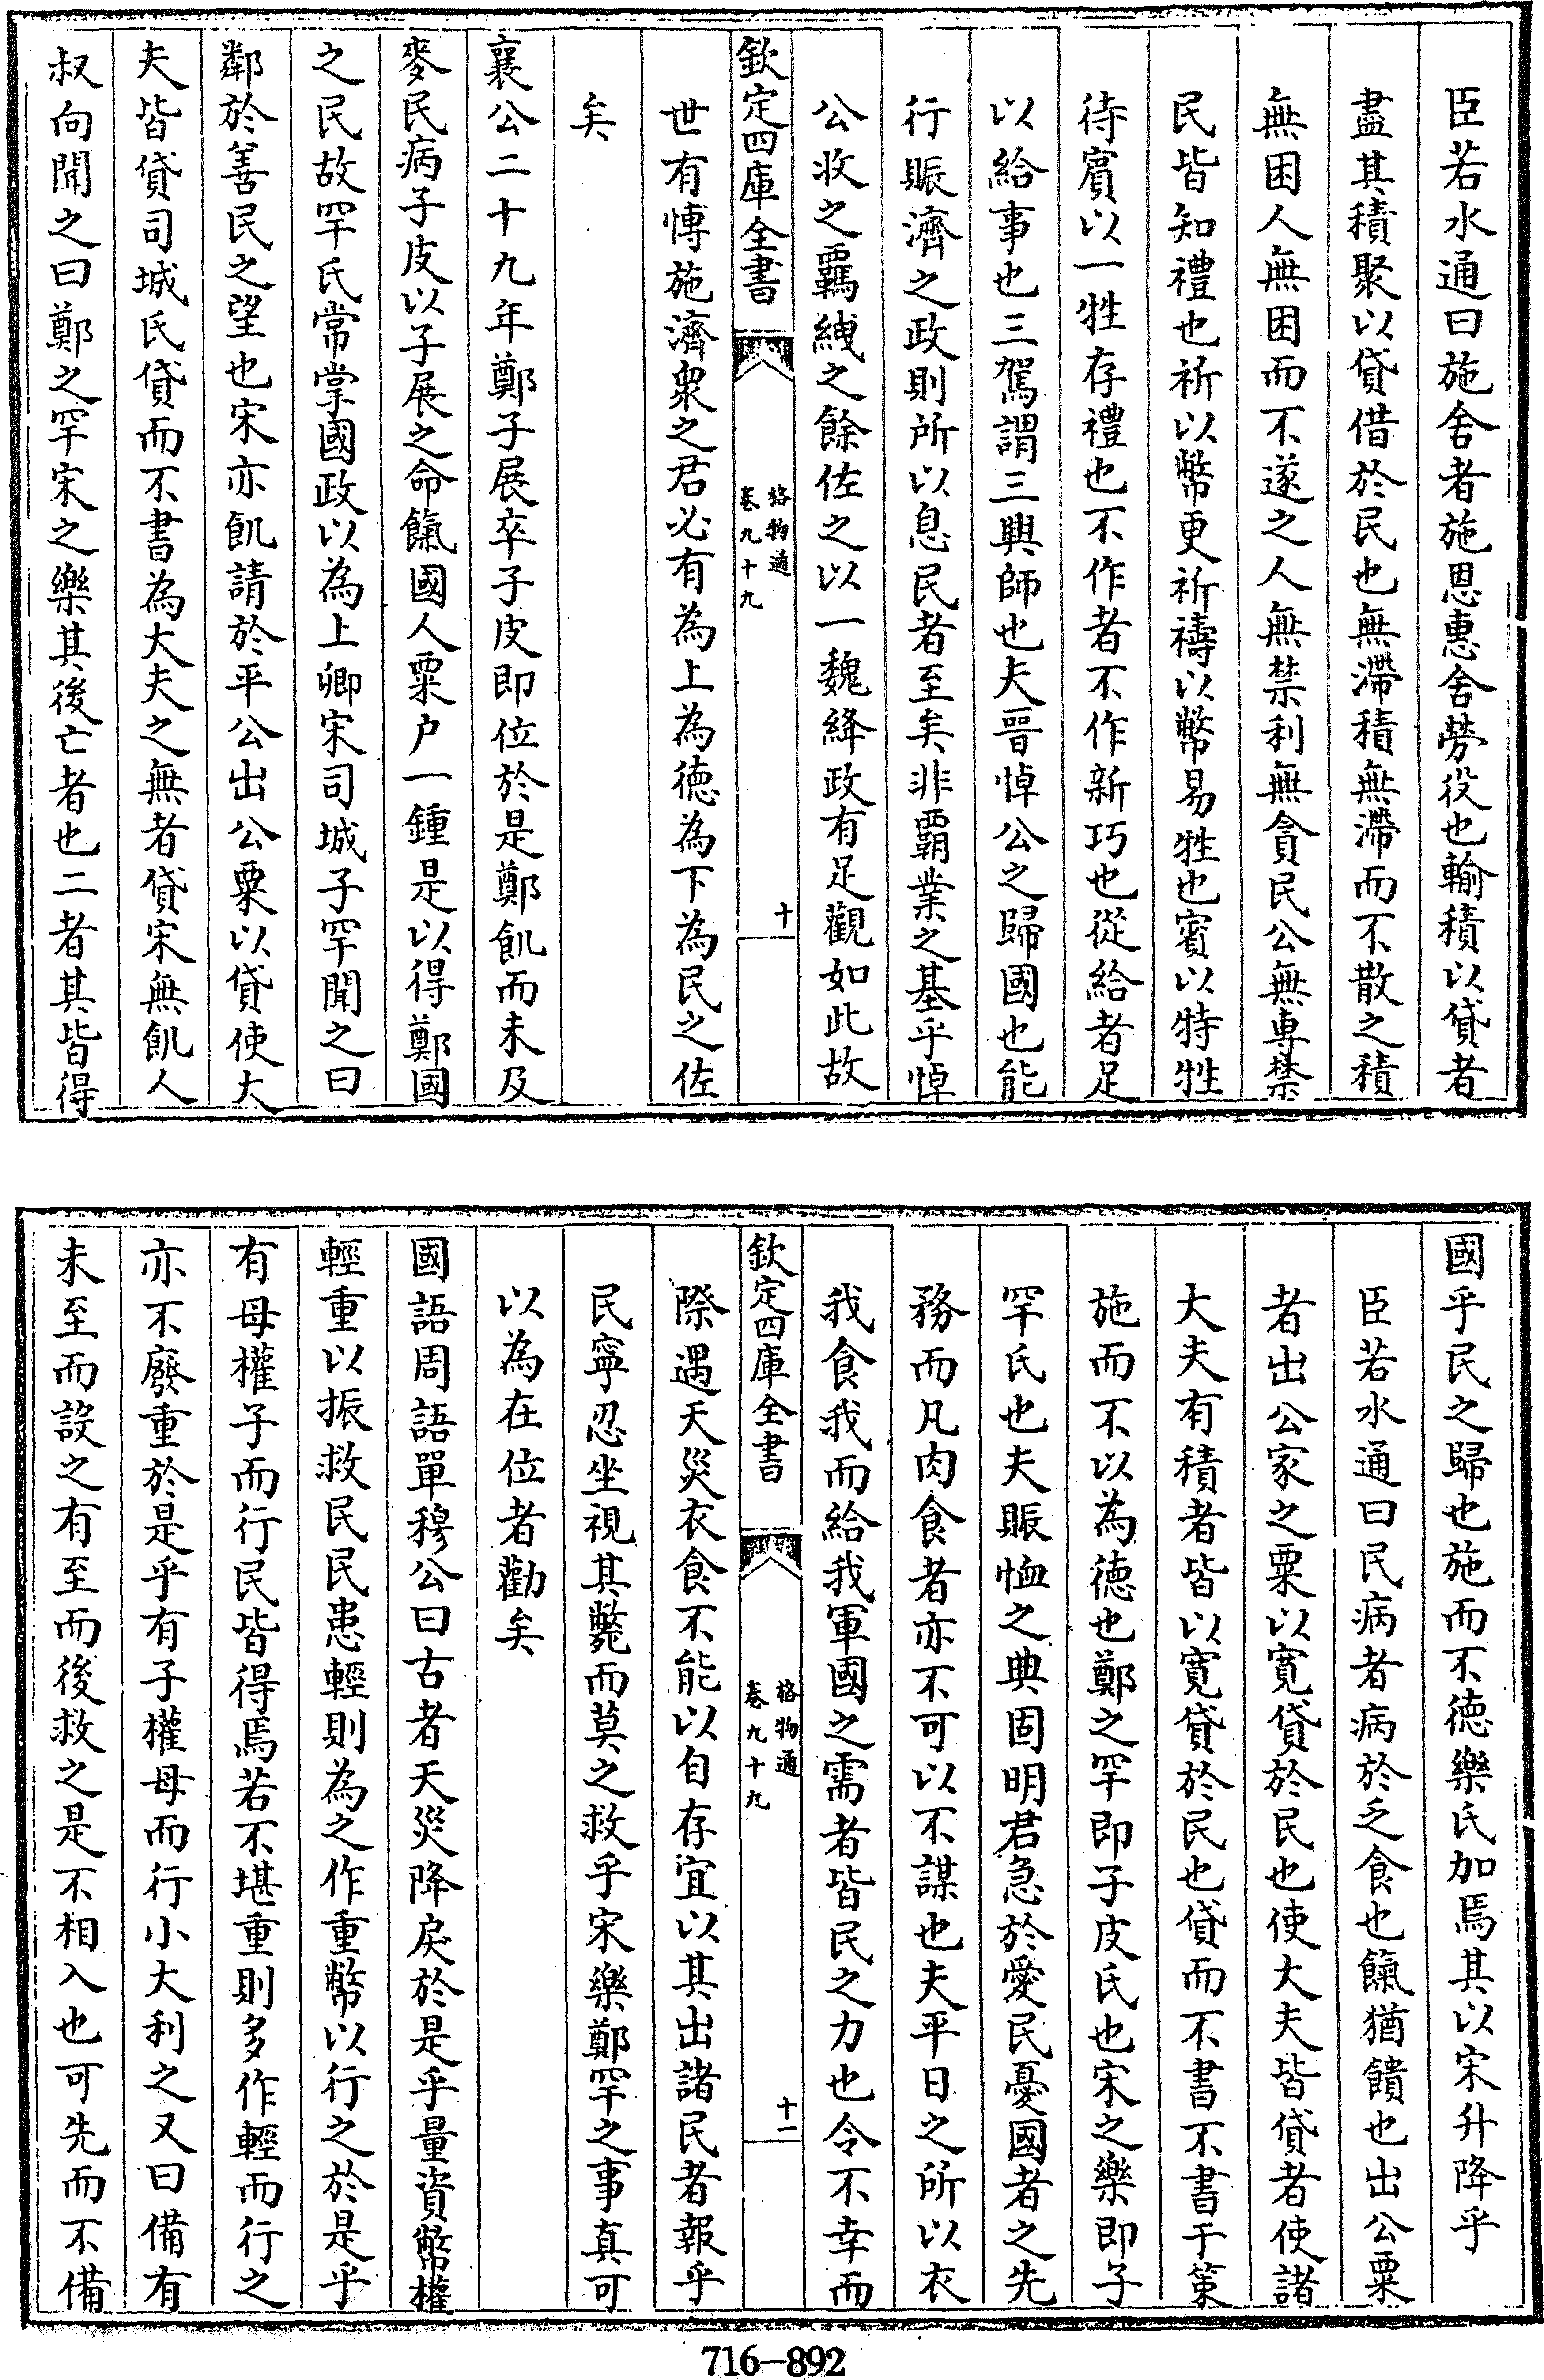 臣若水通曰施舍者施恩惠舍勞役也輸積以貸者
盡其積聚以貸借於民也無滯積無滯而不散之積
無困人無困而不遂之人無禁利無貪民公無專禁
民皆知禮也祈以幣更祈禱以幣易牲也賓以特牲
待賓以一牲存禮也不作者不作新巧也從給者足
以給事也三駕謂三興師也夫晉悼公之歸國也能
行賑濟之政則所以息民者至矣非覇業之基乎悼
公收之覊絏之餘佐之以一魏絳政有足觀如此故
欽定四庫全書
格物通
卷九十九
十
世有愽施濟衆之君必有為上為徳為下為民之佐
矣
襄公二十九年鄭子展卒子皮即位於是鄭飢而未及
麥民病子皮以子展之命餼國人粟户一鍾是以得鄭國
之民故罕氏常掌國政以為上卿宋司城子罕聞之曰
鄰於善民之望也宋亦飢請於平公出公粟以貸使大
夫皆貸司城氏貸而不書為大夫之無者貸宋無飢人
叔向聞之曰鄭之罕宋之樂其後亡者也二者其皆得
國乎民之歸也施而不徳樂氏加焉其以宋升降乎
臣若水通曰民病者病於乏食也餼猶饋也出公粟
者出公家之粟以寛貸於民也使大夫皆貸者使諸
大夫有積者皆以寛貸於民也貸而不書不書于策
施而不以為徳也鄭之罕即子皮氏也宋之樂即子
罕氏也夫賑恤之典固明君急於愛民憂國者之先
務而凡肉食者亦不可以不謀也夫平日之所以衣
我食我而給我軍國之需者皆民之力也令不幸而
欽定四庫全書
格物通
卷九十九
十一
際遇天災衣食不能以自存宜以其出諸民者報乎
民寜忍坐視其斃而莫之救乎宋樂鄭罕之事真可
以為在位者勸矣
國語周語單穆公曰古者天災降戾於是乎量資幣權
輕重以振救民民患輕則為之作重幣以行之於是乎
有母權子而行民皆得焉若不堪重則多作輕而行之
亦不廢重於是乎有子權母而行小大利之又曰備有
未至而設之有至而後救之是不相入也可先而不備
716—892